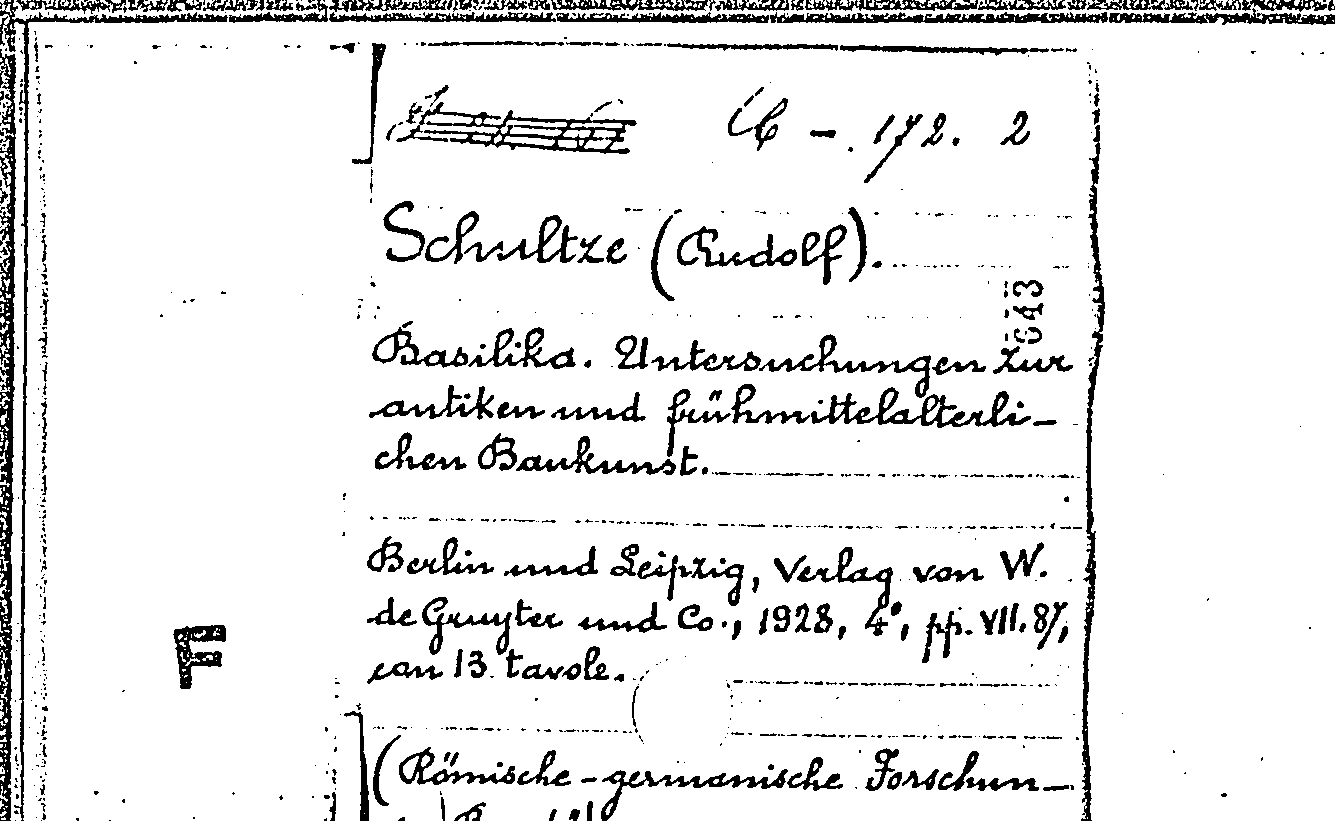 C - 172. 2
Schultze (Rudolf).
643
Basilika. Untersuchungen zur
antiken und frühmittelalterli-
chen Baukunst.
Berlin und Leipzig, Verlag von W.
de Gruyter und Co., 1928, 4°, pp. VII. 87,
con 13 tavole.
F
(Römische-germanische Forschun-